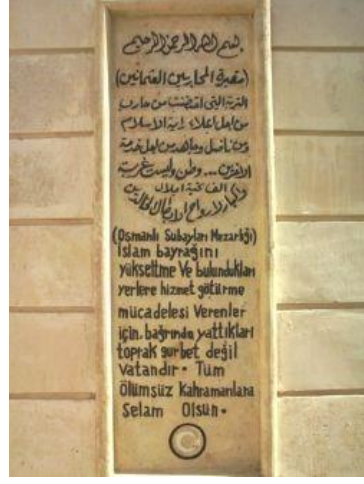 بسم الله الرحمن الرحيم
(مقبرة المحاربين العثمانيين)
التربة التي احتضنت من حارب
من اجل اعلاء راية الاسلام
ومن ناضل وجاهد من اجل خدمة
الاخرين ... وطن وليست غربة
الفاتحة
لارواح الابطال الخالدين
(Osmanlı Subayları Mezarlığı)
İslam bayrağını
yükseltme Ve bulundukları
yerlere hizmet götürme
mücadelesi Verenler
için, bağrında yattıkları
toprak gurbet değil
Vatandır. Tüm
Ölümsüz Kahramanlara
Selam Olsun.